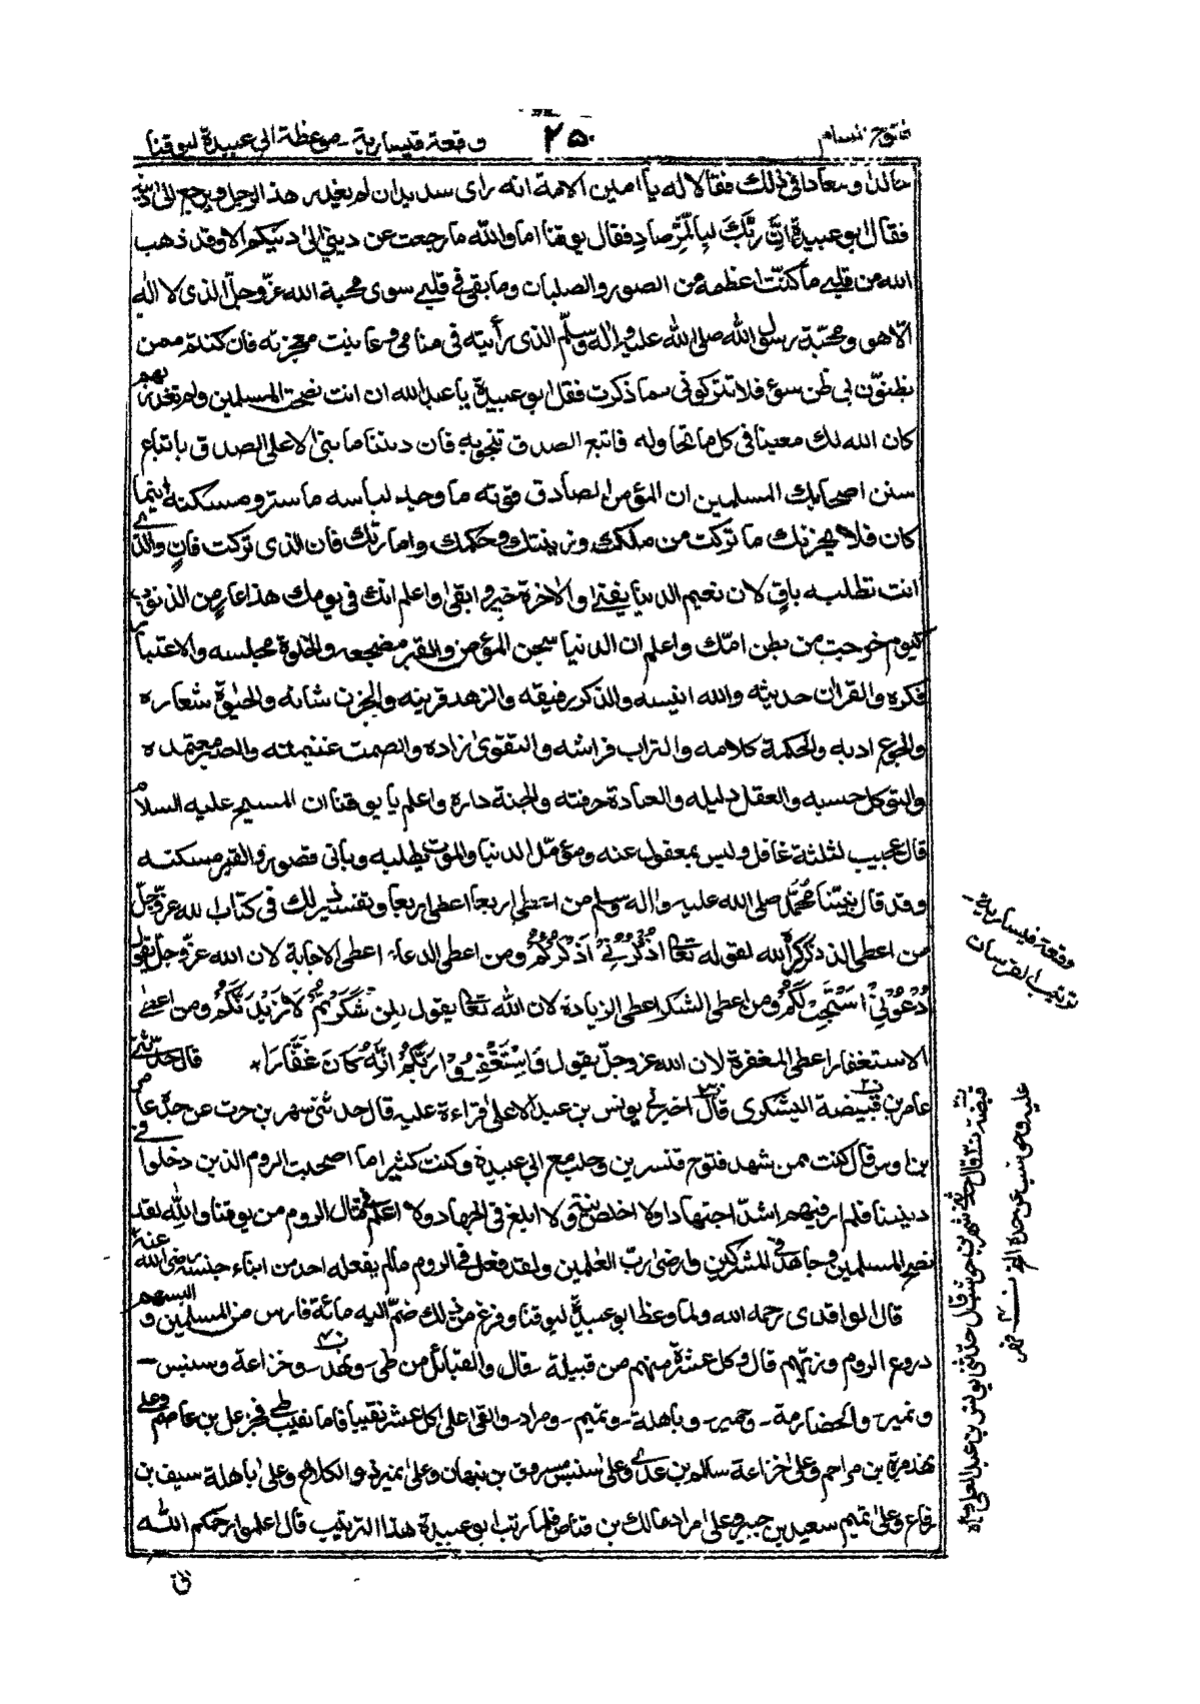 فتوح شام ٢٥٠ وقعة قيسارية - موعظة ابي عبيدة ليوقنا
خالدا و معاذا في ذلك فقالا له يا امين الامة انه راى سديد ان لم يغدر هذا الرجل ويرجع الى دينه
فقال ابو عبيدة اِنَّ رَبَّكَ لَبِالْمِرْصَادِ فقال يوقنا اما والله ما رجعت عن ديني الى دينكم الا وقد ذهب
الله من قلبي ما كنت اعظمه من الصور والصلبان وما بقى في قلبي سوى محبة الله عزّ وجلّ الذى لا اله
الّا هو ومحبّة رسول الله صلى الله عليه واله وسلّم الذى رأيته فى منامى وعاينت معجزته فان كنتم ممن
تظنّون بى ظن سوء فلا تتركونى مما ذكرت فقل ابو عبيدة يا عبد الله ان انت نصحت المسلمين ولم تغدر بهم
كان الله لك معينا فى كل ما تحاوله فاتبع الصدق تنج به فان ديننا ما بنى الا على الصدق باتباع
سنن اصحابك المسلمين ان المؤمن الصادق قوته ما وجد لباسه ما ستر ومسكنه اينما
كان فلا يحزنك ما تركت من ملكك وزينتك وحكمك وامارتك فان الذى تركت فانٍ والذى
انت تطلبه باقٍ لان نعيم الدنيا يفنى والاخرة خير وابقى واعلم انك في يومك هذا عارٍ من الذنوب
كيوم خرجت من بطن امّك واعلم ان الدنيا سجن المؤمن والقبر مضجعه والخلوة مجلسه والاعتبار
فكره والقران حديثه والله انيسه والذكر رفيقه والزهد قرينه والحزن شانه والحيوة شعاره
والجوع ادبه والحكمة كلامه والتراب فراشه والتقوى زاده والصمت غنيمته والصبر معتمده
والتوكل حسبه والعقل دليله والعبادة حرفته والجنة داره واعلم يا يوقنا ان المسيح عليه السلام
قال عجيب لثلثة غافل وليس بمغفول عنه ومؤمّل الدنيا والموت يطلبه وبانى قصور والقبر مسكنه
وقد قال نبيّنا مُحَمَّد صلى الله عليه واله وسلم من اعطى اربعا اعطى اربعا وتفسير ذلك فى كتاب الله عزّ وجلّ
من اعطى الذكر ذكره الله لقوله تعا اُذْكُرُوْنِىْ اَذْكُرْكُمْ ومن اعطى الدعاء اعطى الاجابة لان الله عزّ وجلّ يقول
ادْعُوْنِىْ اَسْتَجِبْ لَكُمْ ومن اعطى الشكر اعطى الزيادة لان الله تعا يقول لئِنْ شَكَرْتُمْ لَاَزِيْدَنَّكُمْ ومن اعطى
الاستغفار اعطى المغفرة لان الله عزوجلّ يقول فَاسْتَغْفِرُوْا رَبَّكُمْ اِنَّهٗ كَانَ غَفَّارًا قال حدّثنى
عامر بن قبيضة اليشكرى قال اخبرنى يونس بن عبد الاعلى قراءة عليه قال حدثنى سهر بن حرث عن جدّه عامر
بناوس قال كنت ممن شهد فتوح قنسرين وحلب مع ابى عبيدة وكنت كثيرا ما اصحبت الروم الذين دخلوا فى
ديننا فلم ار فيهم اشدّ اجتهادا ولا اخلص نية ولا ابلغ فى الجهاد ولا اعلم فى قتال الروم من يوقنا والله لقد
نصح المسلمين وجاهد فى المشركين وارضى ربّ العلمين ولقد فعل فى الروم ما لم يفعله احد من ابناء جنسه رضى الله عنه
قال الواقدى رحمه الله ولما وعظ ابو عبيدة ليوقنا وفرغ من ذلك ضمّ اليه مائة فارس من المسلمين والبسهم
دروع الروم وزيّهم قال وكل عشرة منهم من قبيلة قال والقبائل من طى - ونهد - وخزاعة وسنبس -
ونمير - والحضارمة - وحمير - وباهلة - وتميم - ومراد - والقى على كل عشر نقيبا فاما نقيب طى فجزعل بن عاصم وعلى
نهد مرة بن مراحم وعلى خزاعة سالم بن عدى وعلى سنبس مسروق بن نبهان وعلى نمير ذو الكلاع وعلى باهلة سيف بن
رفاع وعلى تميم سعيد بن جبير وعلى مراد مالك بن قناص فلما رتب ابو عبيدة هذا الترتيب قال اعلموا رحمكم الله
وقعة قيسارية
ترتيب الفرسان